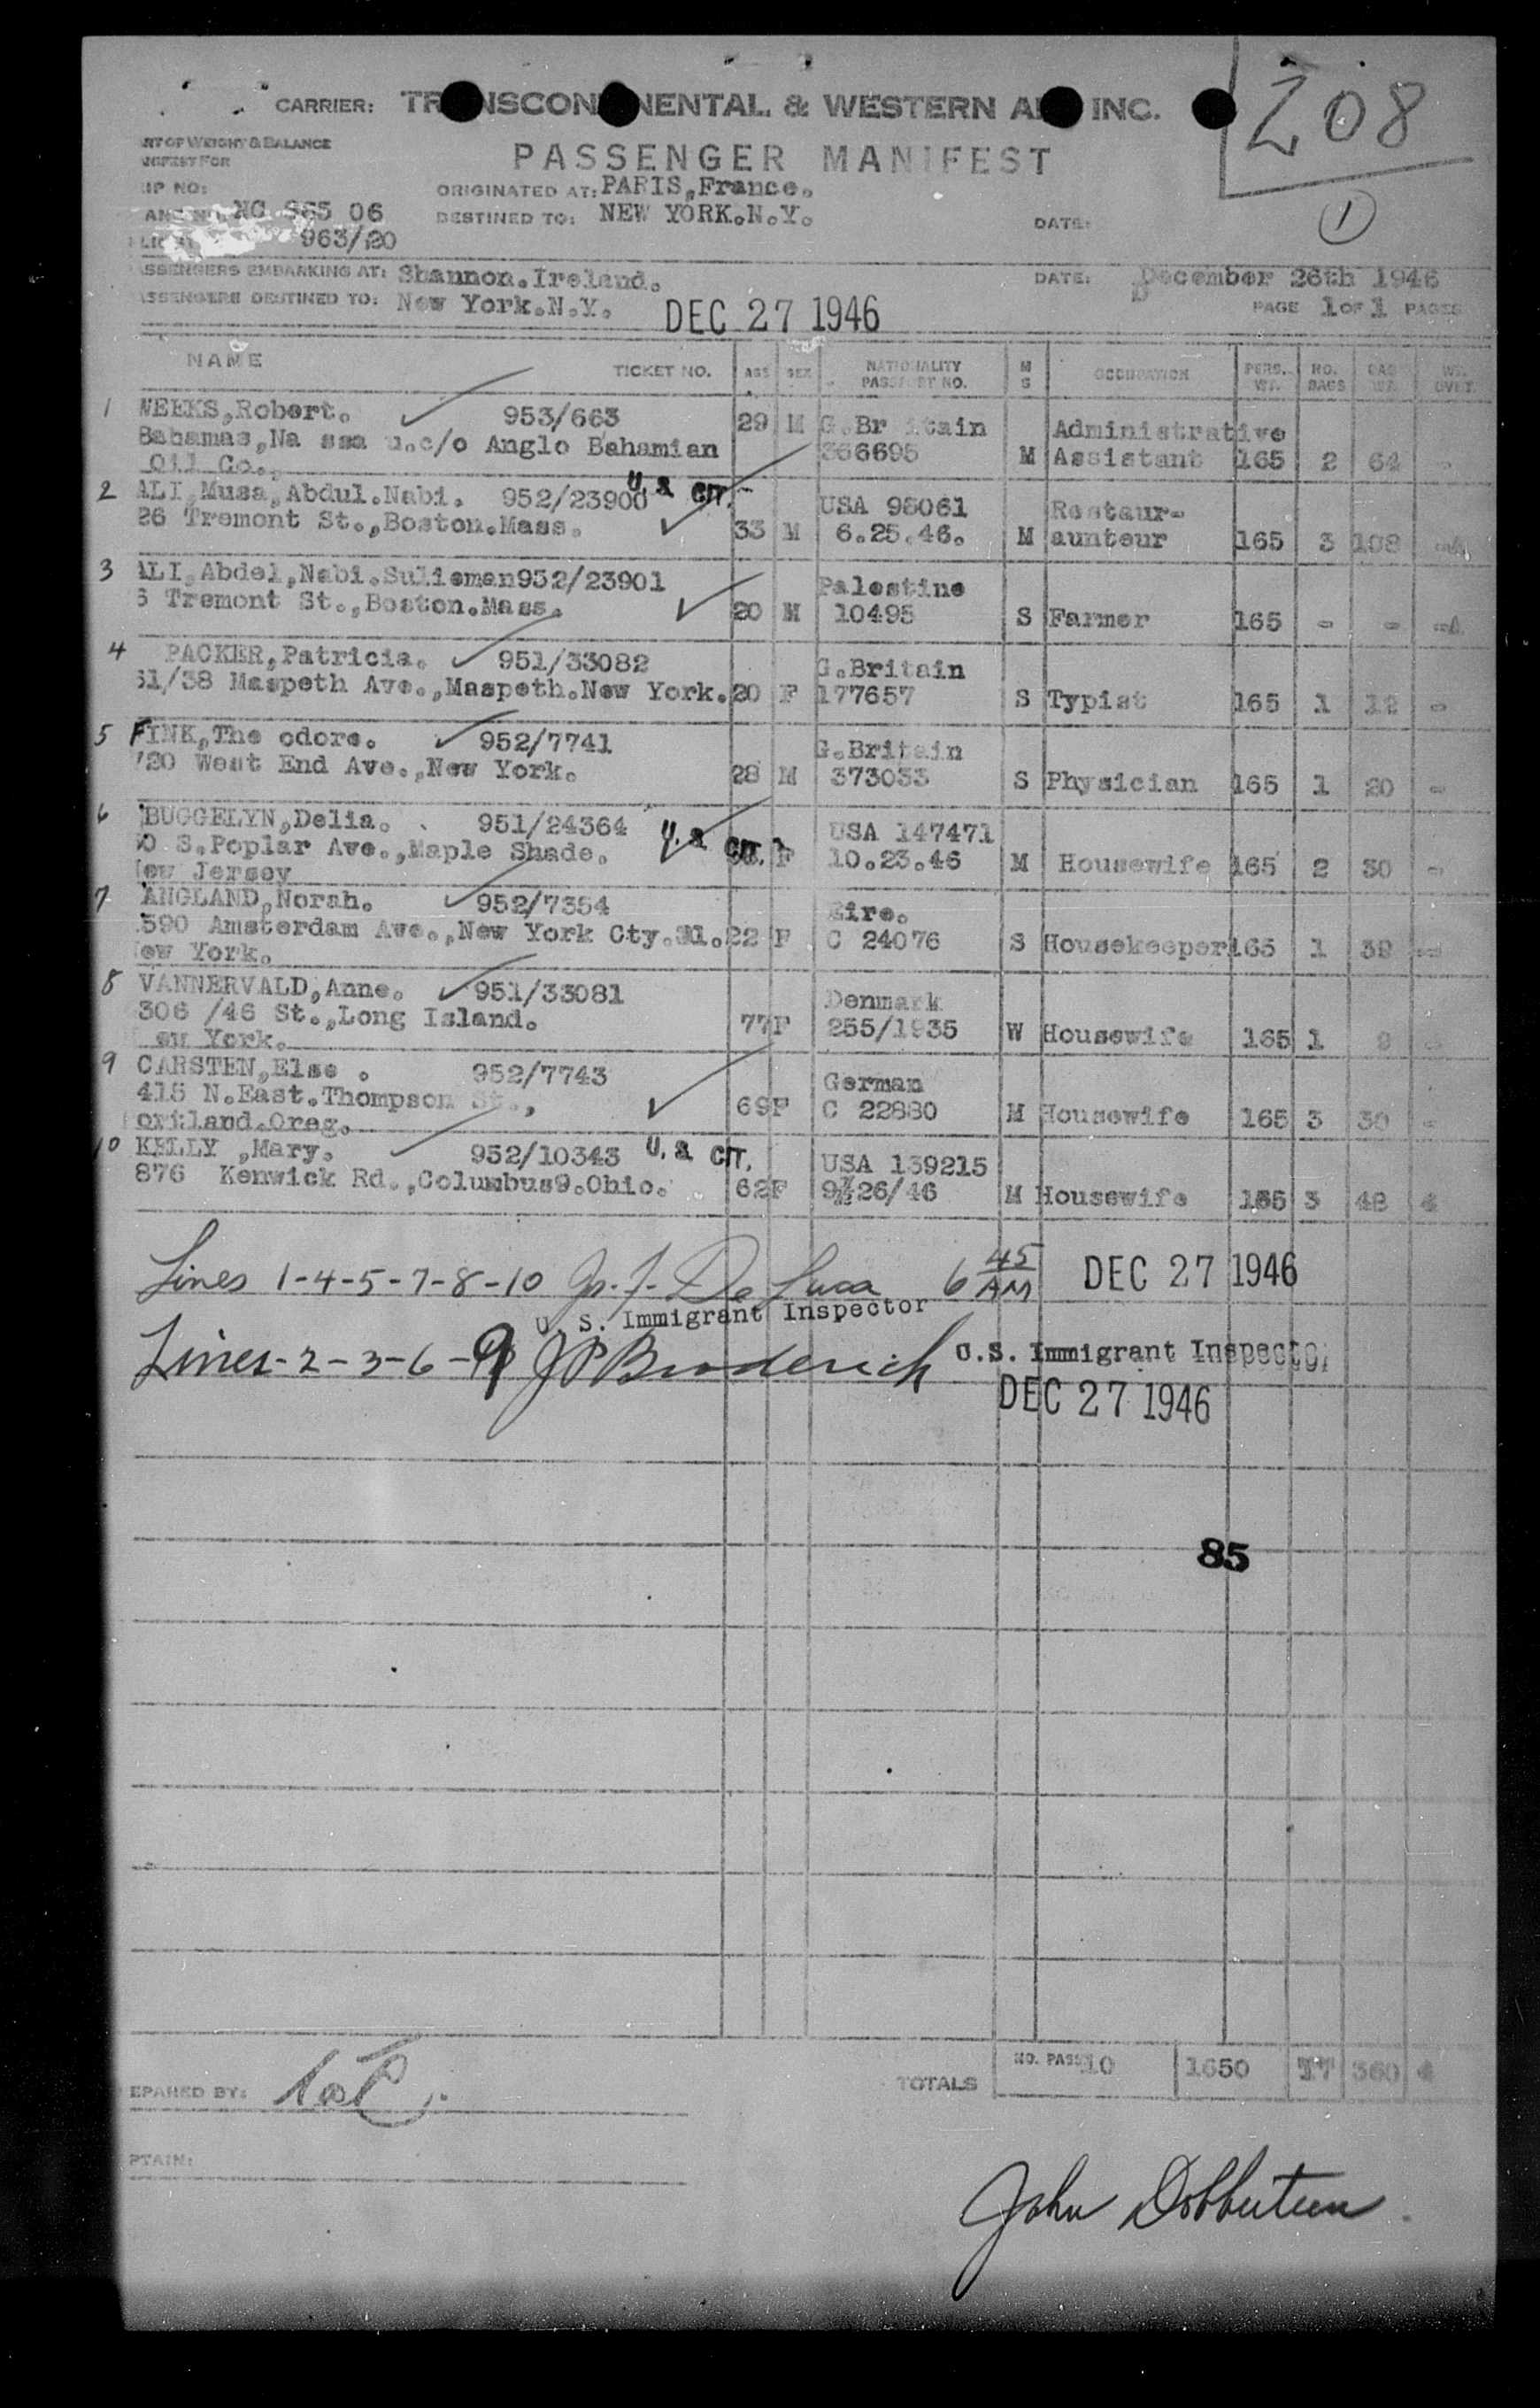 208
CARRIER: TR NSCON NENTAL & WESTERN AI INC.
RT OF WEIGHT & BALANCE
NIFEST FOR
PASSENGER MANIFEST
IP NO:
ORIGINATED AT: PARIS,France.
NC 06
DESTINED TO: NEW YORK.N.Y.
DATE:
1
963/20
ASSENGERS EMBARKING AT: Shannon.Ireland.
DATE: December 26th 1946
ASSENGERS DESTINED TO: New York.N.Y.
DEC 27 1946
PAGE 1 OF 1 PAGES
NAME TICKET NO. AGE SEX NATIONALITY PASSPORT NO. M S OCCUPATION PERS. WT. NO. BAGS BAG WT. WT. OVWT.
1 WEEKS,Robert. 953/663 29 M G.Br itain Administrative
Bahamas,Na ssa u.c/o Anglo Bahamian 366695 M Assistant 165 2 64 -
Oil Co.,
2 ALI,Musa,Abdul.Nabi. 952/23900 U.S CIT. USA 98061 Restaur-
26 Tremont St.,Boston.Mass. 33 M 6.25.46. M aunteur 165 3 108
3 ALI,Abdel,Nabi.Sulieman952/23901 Palestine
6 Tremont St.,Boston.Mass. 20 M 10495 S Farmer 165 - -
4 PACKER,Patricia. 951/33082 G.Britain
61/38 Maspeth Ave.,Maspeth.New York. 20 F 177657 S Typist 165 1 12 -
5 FINK,The odore. 952/7741 G.Britain
720 West End Ave.,New York. 28 M 373033 S Physician 165 1 20 -
6 BUGGELYN,Delia. 951/24364 U.S CIT. USA 147471
0 S.Poplar Ave.,Maple Shade. F 10.23.46 M Housewife 165 2 30 -
ew Jersey
7 ANGLAND,Norah. 952/7354 Eire.
590 Amsterdam Ave.,New York Cty. 22 F C 24076 S Housekeeper 165 1 39 -
ew York.
8 VANNERVALD,Anne. 951/33081 Denmark
306 /46 St.,Long Island. 77 F 255/1935 W Housewife 165 1 9 -
ew York.
9 CARSTEN,Else . 952/7743 German
415 N.East.Thompson St., 69 F C 22880 M Housewife 165 3 30 -
ortland.Oreg.
10 KELLY ,Mary. 952/10343 U.S CIT. USA 139215
876 Kenwick Rd.,Columbus9.Ohio. 62 F 9/26/46 M Housewife 165 3 48 4
Lines 1-4-5-7-8-10 De Luca 6 45 AM DEC 27 1946
U. S. Immigrant Inspector
Lines-2-3-6-9 JP Broderick U.S. Immigrant Inspector
DEC 27 1946
85
TOTALS NO. PASS 10 1650 17 360 4
EPARED BY:
PTAIN:
John Dobberteen